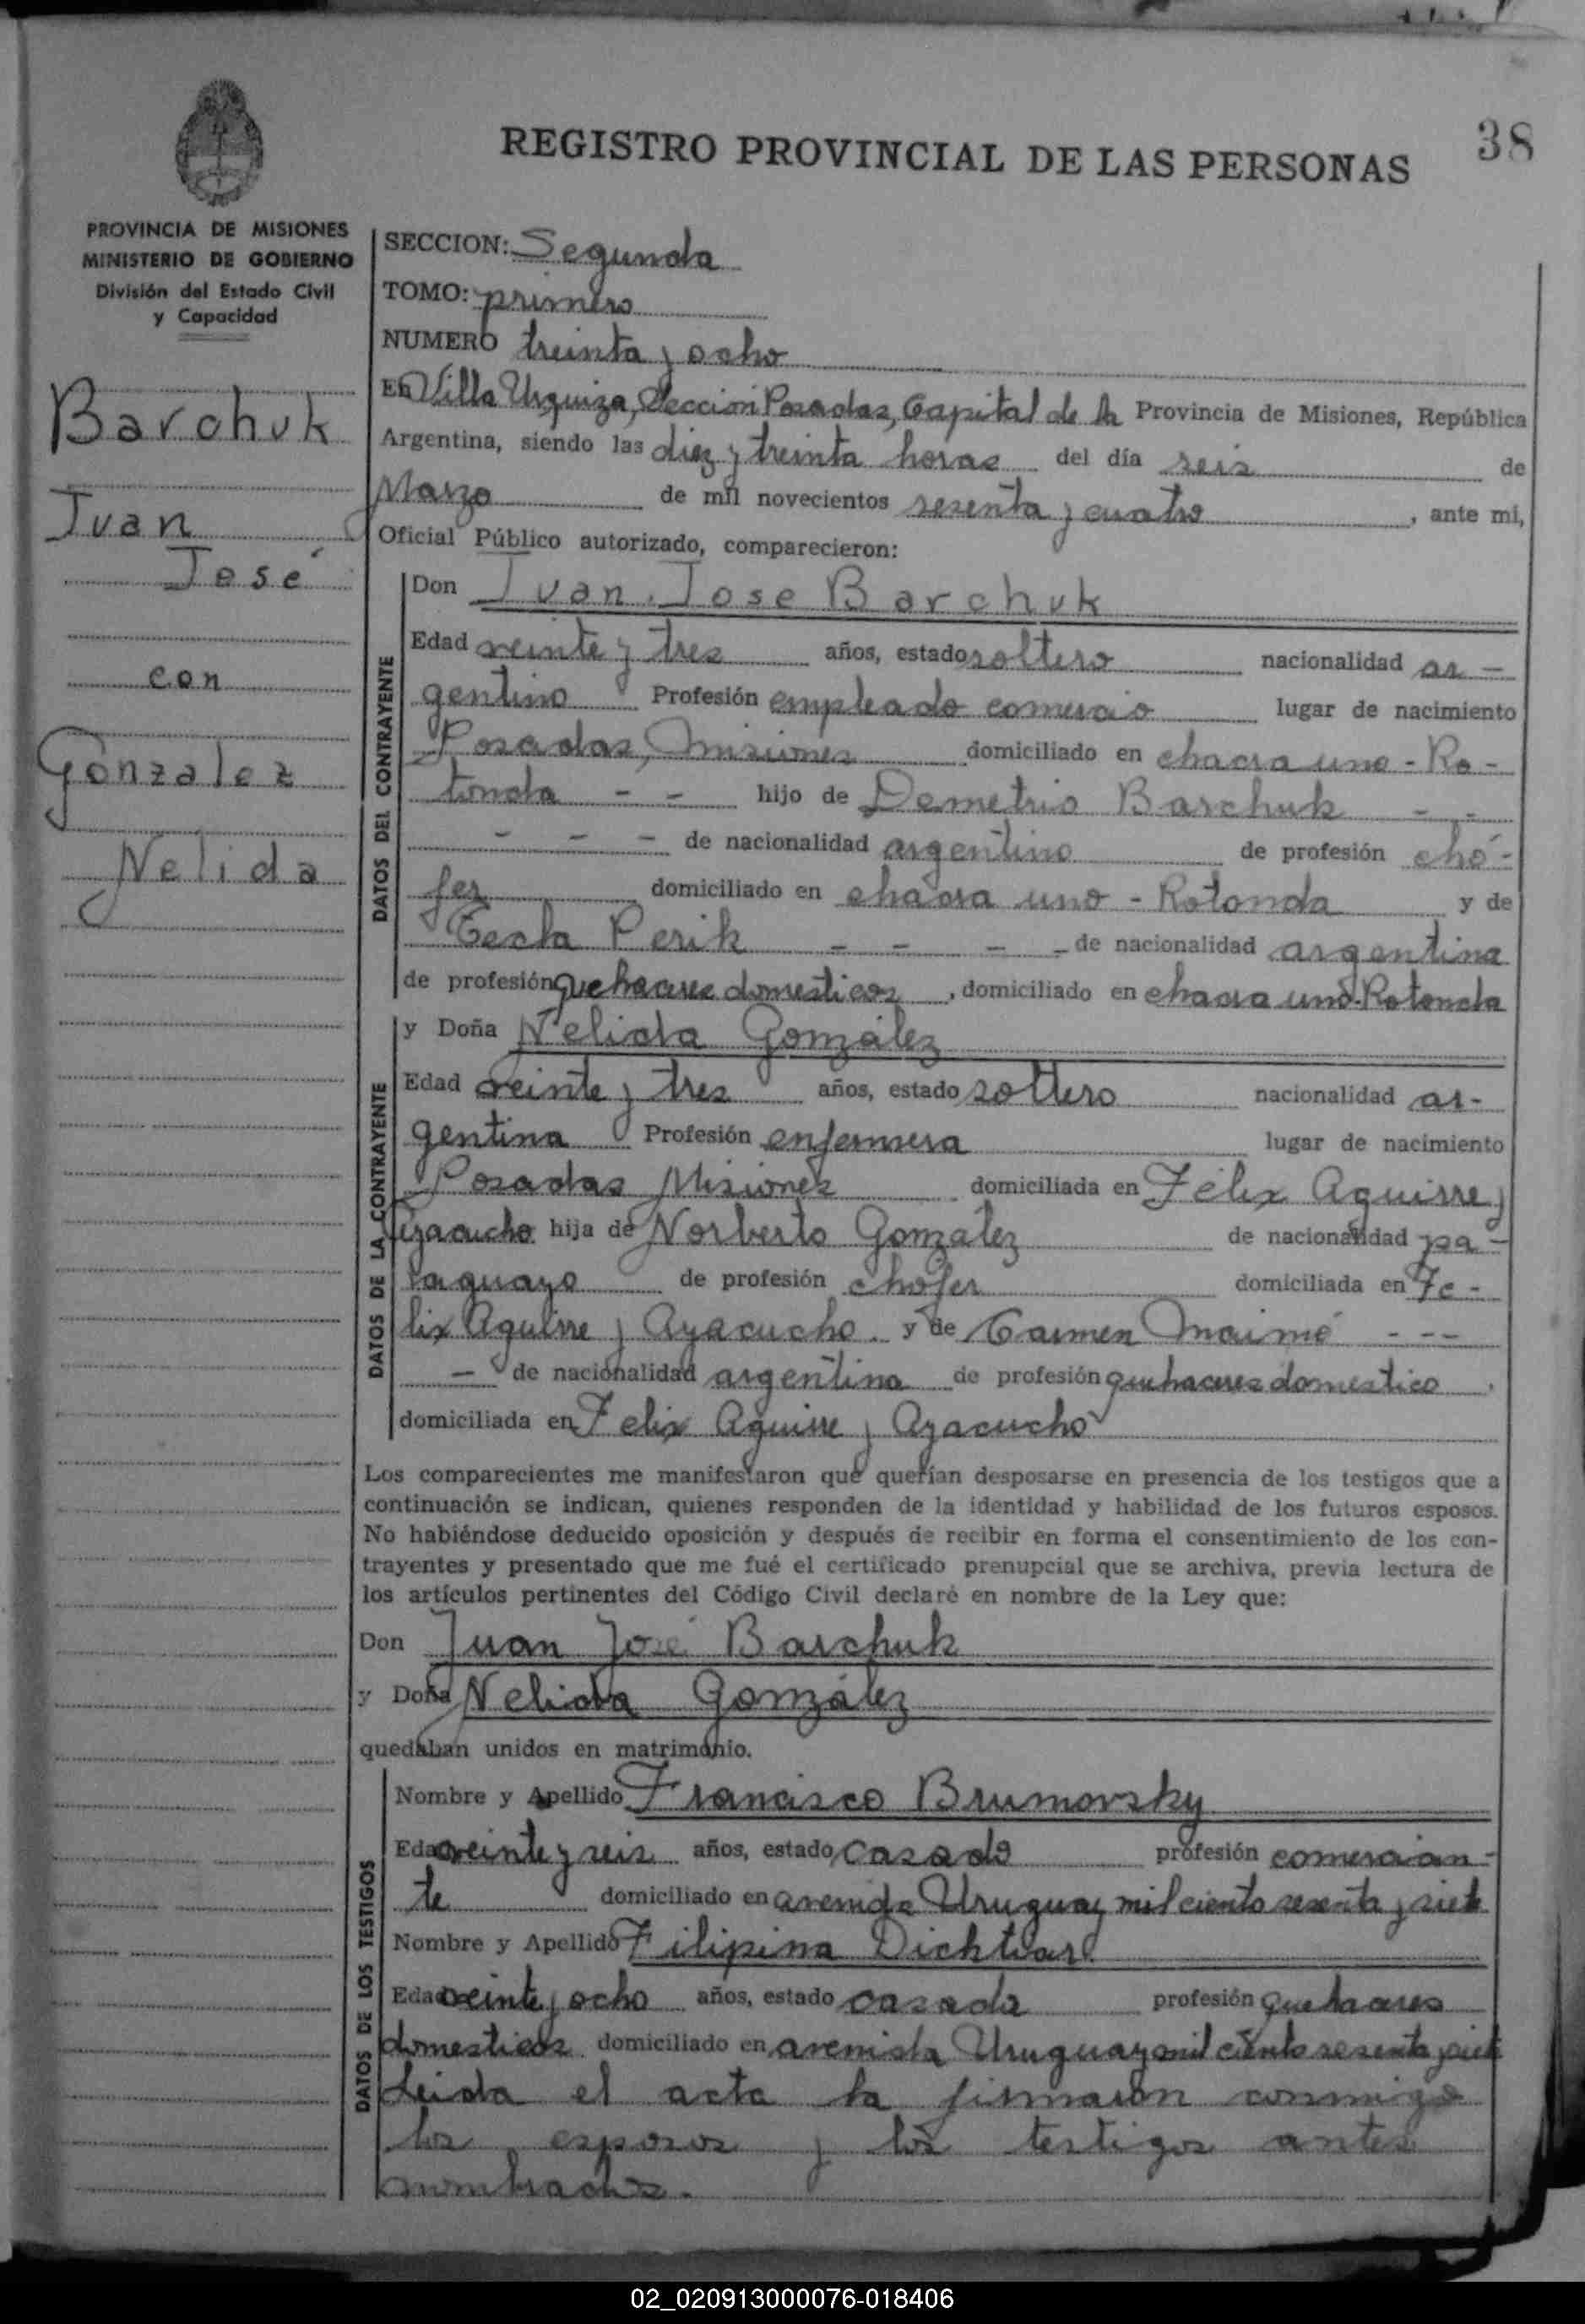 REGISTRO PROVINCIAL DE LAS PERSONAS
38
PROVINCIA DE MISIONES
MINISTERIO DE GOBIERNO
División del Estado Civil
y Capacidad
Barchuk
Juan
José
con
Gonzalez
Nelida
SECCION: Segunda
TOMO: primero
NUMERO treinta y ocho
En Villa Urquiza, Sección Posadas, Capital de la Provincia de Misiones, República
Argentina, siendo las diez y treinta horas del día seis de
Marzo de mil novecientos sesenta y cuatro, ante mí,
Oficial Público autorizado, comparecieron:
DATOS DEL CONTRAYENTE
Don Juan Jose Barchuk
Edad veinte y tres años, estado soltero nacionalidad ar-
gentino Profesión empleado comercio lugar de nacimiento
Posadas, Misiones domiciliado en chacra uno - Ro-
tonda - - hijo de Demetrio Barchuk - -
- - - de nacionalidad argentino de profesión chó-
fer domiciliado en chacra uno - Rotonda y de
Tecla Perik - - - - de nacionalidad argentina
de profesión quehaceres domesticos, domiciliado en chacra uno-Rotonda
DATOS DE LA CONTRAYENTE
y Doña Nelida González
Edad veinte y tres años, estado soltero nacionalidad ar-
gentina Profesión enfermera lugar de nacimiento
Posadas Misiones domiciliada en Félix Aguirre y
Ayacucho hija de Norberto Gonzalez de nacionalidad pa-
raguayo de profesión chofer domiciliada en Fe-
lix Aguirre y Ayacucho. y de Carmen Maimé - - -
- de nacionalidad argentina de profesión quehaceres domestico,
domiciliada en Felix Aguirre y Ayacucho
Los comparecientes me manifestaron que querían desposarse en presencia de los testigos que a
continuación se indican, quienes responden de la identidad y habilidad de los futuros esposos.
No habiéndose deducido oposición y después de recibir en forma el consentimiento de los con-
trayentes y presentado que me fué el certificado prenupcial que se archiva, previa lectura de
los artículos pertinentes del Código Civil declaré en nombre de la Ley que:
Don Juan José Barchuk
y Doña Nelida González
quedaban unidos en matrimonio.
DATOS DE LOS TESTIGOS
Nombre y Apellido Francisco Brumovsky
Edad veinte y seis años, estado casado profesión comercian-
te domiciliado en avenida Uruguay mil ciento sesenta y siete
Nombre y Apellido Filipina Dichtiar
Edad veinte y ocho años, estado casada profesión quehaceres
domesticos domiciliado en avenida Uruguay mil ciento sesenta y siete
Leida el acta la firmaron conmigo
los esposos y los testigos antes
nombrados.
02_020913000076-018406